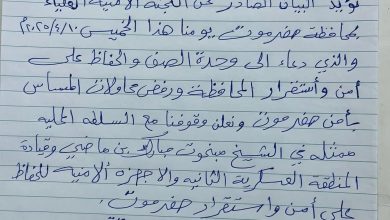 نؤيد البيان الصادر عن اللجنة الامنية العليا
بمحافظة حضرموت يومنا هذا الخميس ٢٠٢٥/٤/١٠م
والذي دعاء الى وحدة الصف والحفاظ على
أمن وأستقرار المحافظة ورفض محاولات المساس
بأمن حضرموت ونعلن وقوفنا مع السلطه المحليه
ممثله في الشيخ مبخوت مبارك بن ماضي وقيادة
المنطقة العسكرية الثانيه والاجهزه الامنية للحفاظ
على أمن واستقرار حضرموت.